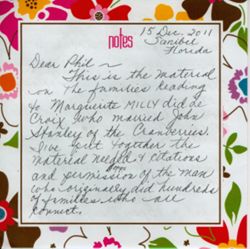 notes
15 Dec. 2011
Sanibel
Florida
Dear Phil ~
This is the material
on the families leading
to Marguerite MILLY dit de
Croix who married John
Stanley of the Cranberries.
I've put together the
material needed & citations
and permission of the man
who originally did hundreds
of families who are
connect.